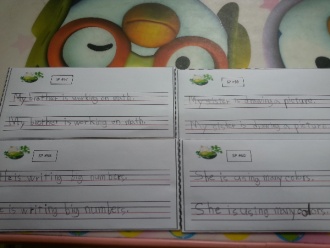 My brother is working on math.
My brother is working on math.
is drawing a picture.
My sister is drawing a picture.
He is writing big numbers.
is writing big numbers.
She is using many colors.
She is using many colors.